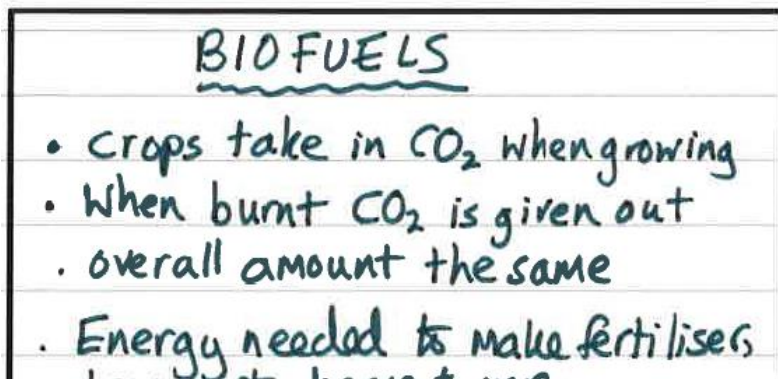 BIOFUELS
• crops take in CO₂ when growing
• When burnt CO₂ is given out
. overall amount the same
. Energy needed to make fertilisers